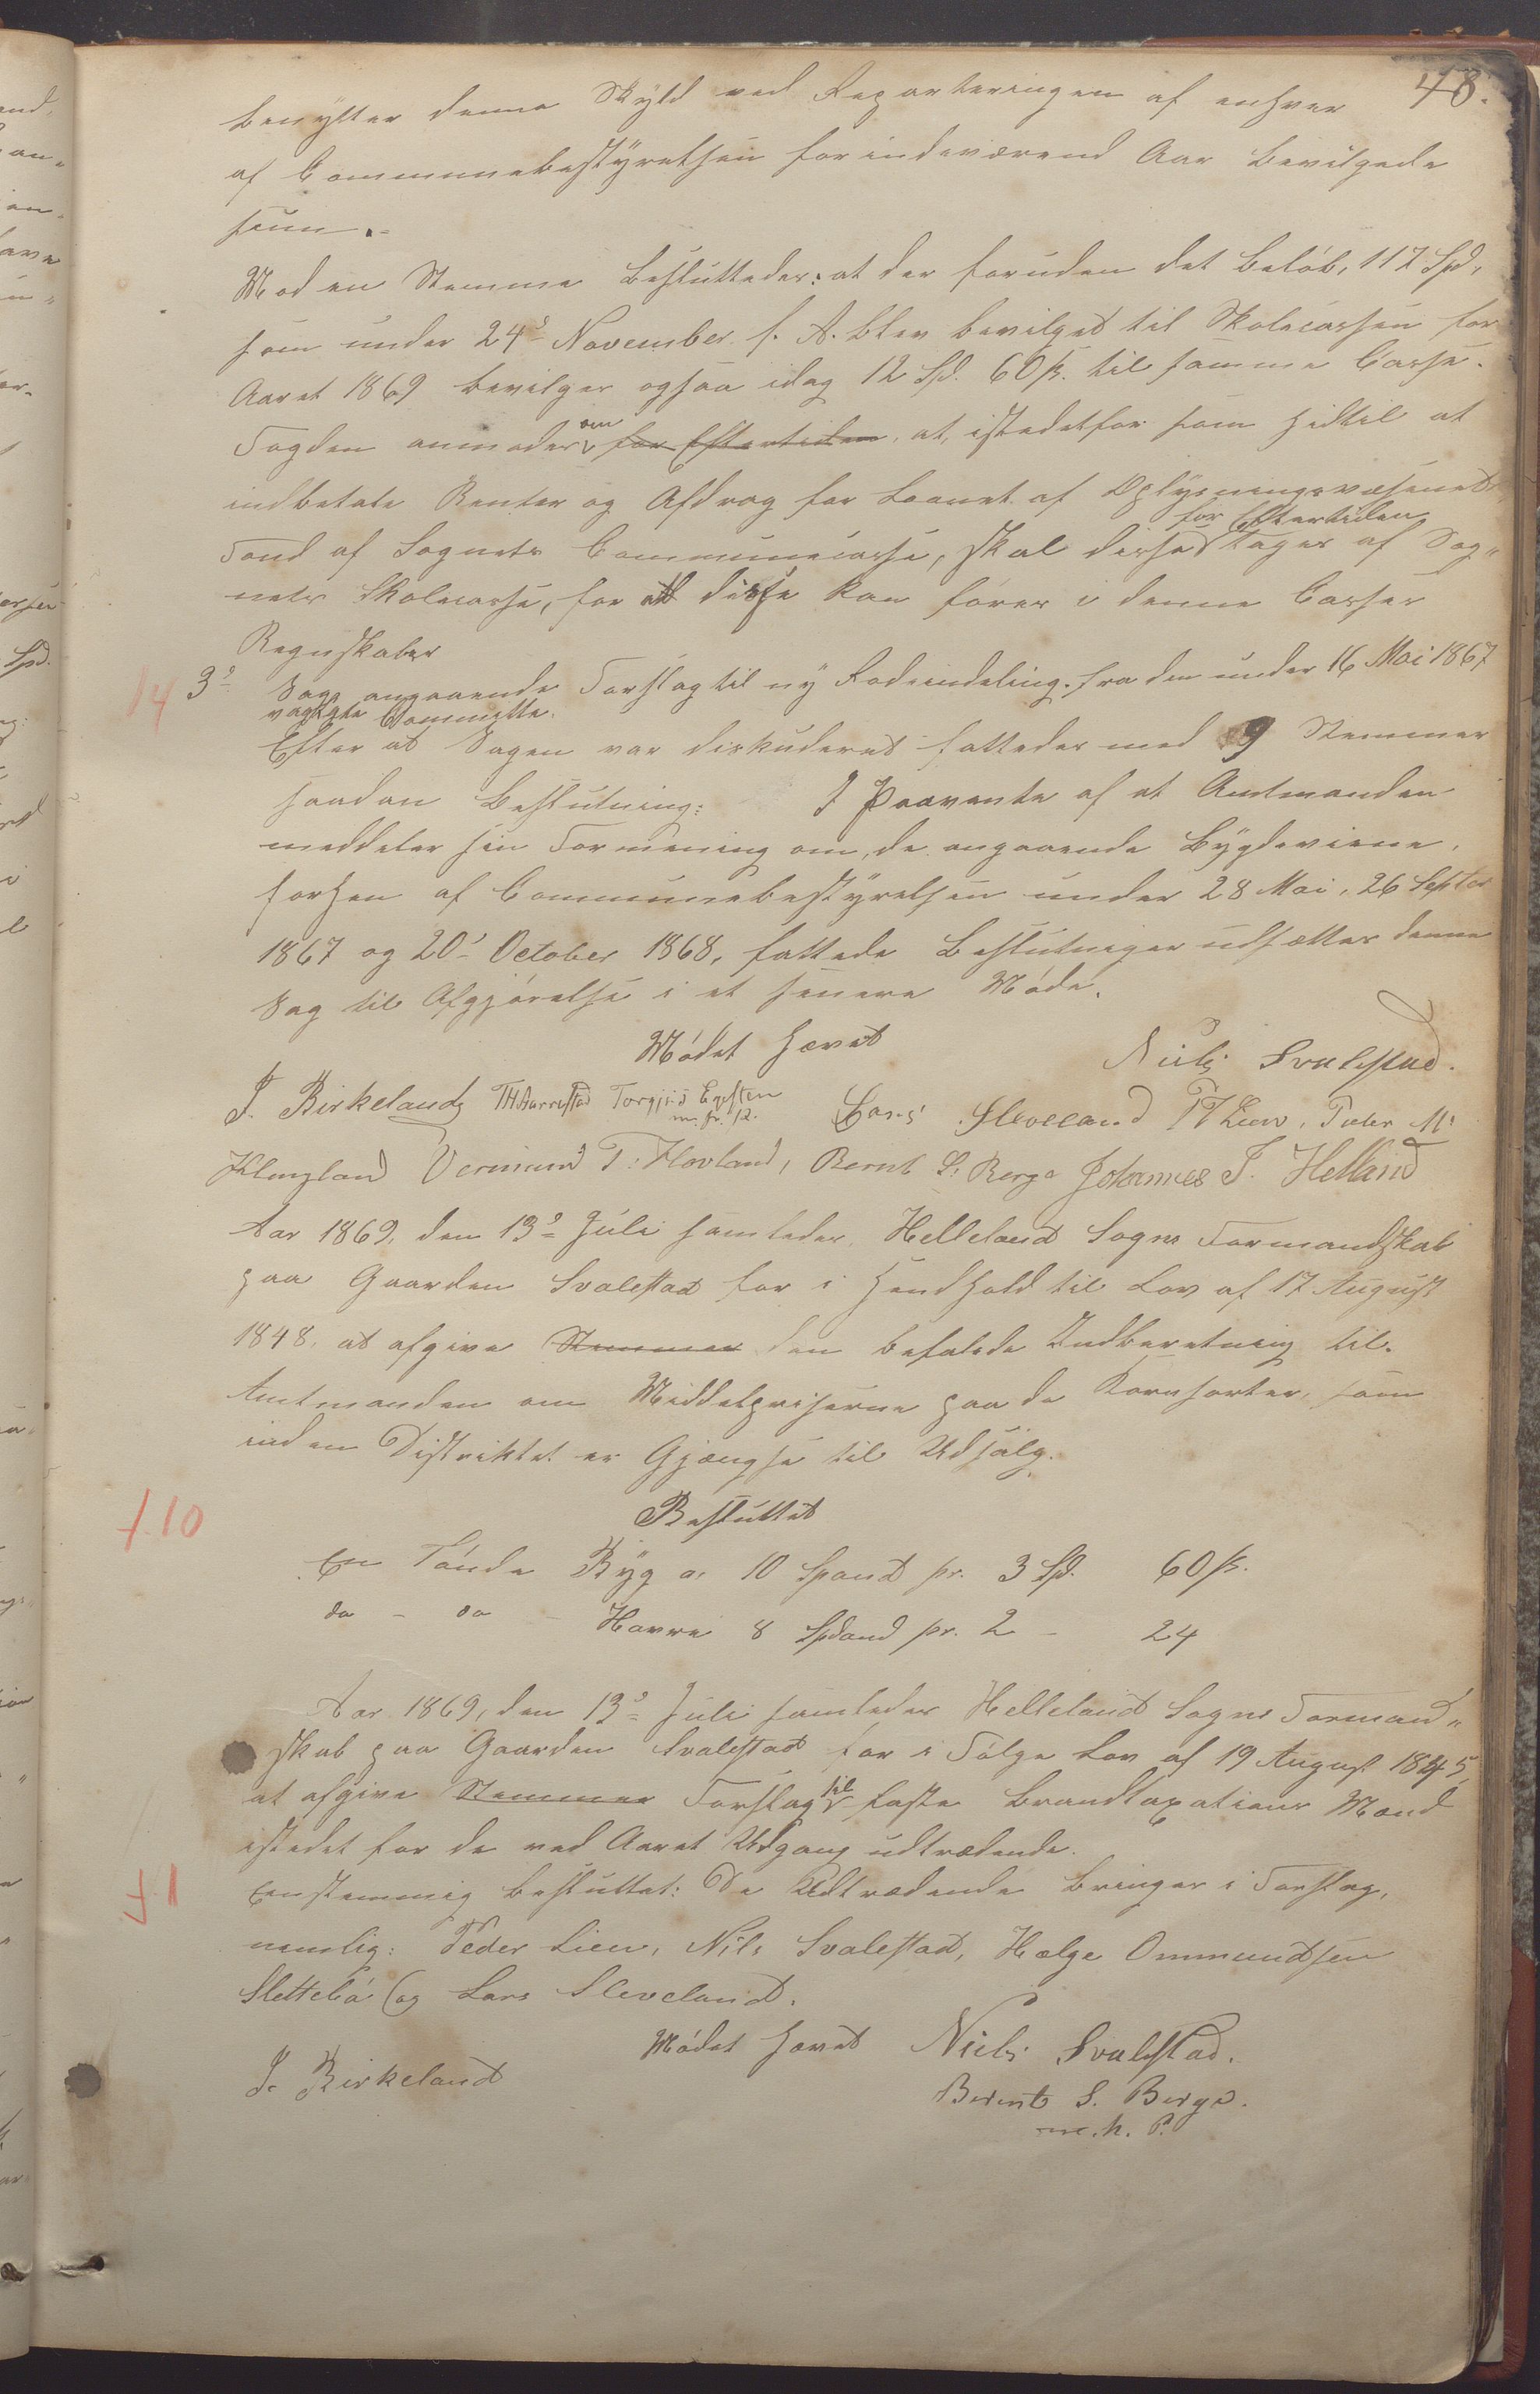 48.
benytter denne Skyld ved Reparteringen af enhver
af Communebestyrelsen for indeværend Aar bevilgede
sum.-
Mod en Stemme besluttedes: at der foruden det Beløb, 117 Spd,
som under 24de November f. A. blev bevilget til Skolecassen for
Aaret 1869 bevilges ogsaa idag 12 Spd. 60 ß. til samme Casse.
Fogden anmodes om for Eftertiden, at, istedetfor som hidtil at
indbetale Renter og Afdrag for Laanet af Oplysningsvæsenets
for Eftertiden
Fond af Sognets Communecasse, skal disse tages af Sog-
nets Skolecasse, for at disse kan føres i denne Casses
Regnskaber
14 3o Sag angaaende Forslag til ny Rodeindeling fra den under 16 Mai 1867
valgte Committe.
Efter at Sagen var diskuderet fattedes med 9 Stemmer
saadan Beslutning: I Paavente af at Amtmanden
meddeler sin Formening om, de angaaende Bygdeveiene,
forhen af Communebestyrelsen under 28 Mai, 26 Septbr
1867 og 20de October 1868, fattede Beslutninger udsættes denne
Sag til Afgjørelse i et senere Møde.
Mødet hævet
Niels Svalestad.
J. Birkeland, TH Aarrestad Torgjus Egesten
m. f. P.
Lars Sleveland P T Lien, Peder M.
Klungland Vermund T. Hovland, Bernt S. Berge Johannes T. Helland
Aar 1869, den 13de Juli samledes Helleland Sogns Formandskab
paa Gaarden Svalestad for i Henhold til Lov af 17 August
1848, at afgive Stemmer den befalede Indberetning til
Amtmanden om Middelpriserne paa de Kornsorter, som
inden Distriktet er Gjængse til Udsalg.
f. 10
Besluttet
En Tønde Byg a. 10 Spand pr. 3 Spd. 60 ß.
do - do - Havre 8 Spand pr. 2 - 24
Aar 1869, den 13de Juli samledes Helleland Sogns Formand-
skab paa Gaarden Svalestad for i Følge Lov af 19 August 1845,
at afgive Stemmer Forslag til faste Brandtaxations Mænd
istedet for de ved Aaret Udgang udtrædende.
f. 1
Eenstemmig besluttet: De Udtrædende bringes i Forslag,
nemlig: Peder Lien, Nils Svalestad, Hælge Ommundsen
Slettebø og Lars Sleveland.
Mødet hævet Niels Svalestad.
J. Birkeland
Berent S. Berge.
m. h. P.